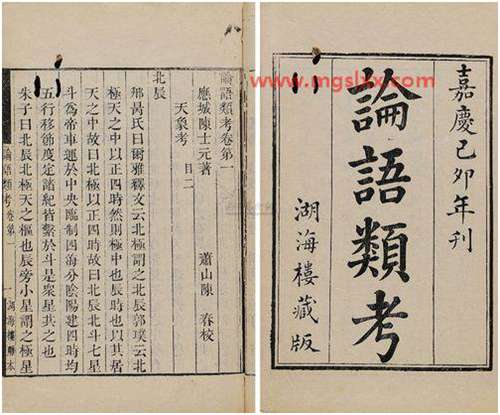 嘉慶己卯年刊
論語類考
湖海樓藏版
www.mgslxx.com
論語類考卷第一
應城陳士元著 蕭山陳 春校
天象考 目二
北辰
邢昺氏曰爾雅釋文云北極謂之北辰郭璞云北
極天之中以正四時然則極中也辰時也以其居
天之中故曰北極以正四時故曰北辰北斗七星
斗爲帝車運於中央臨制四海分陰陽建四時均
五行移節度定諸紀皆繫於斗是衆星共之也
朱子曰北辰北極天之樞也辰旁小星謂之極星
論語類考卷第一 一 湖海樓雕本